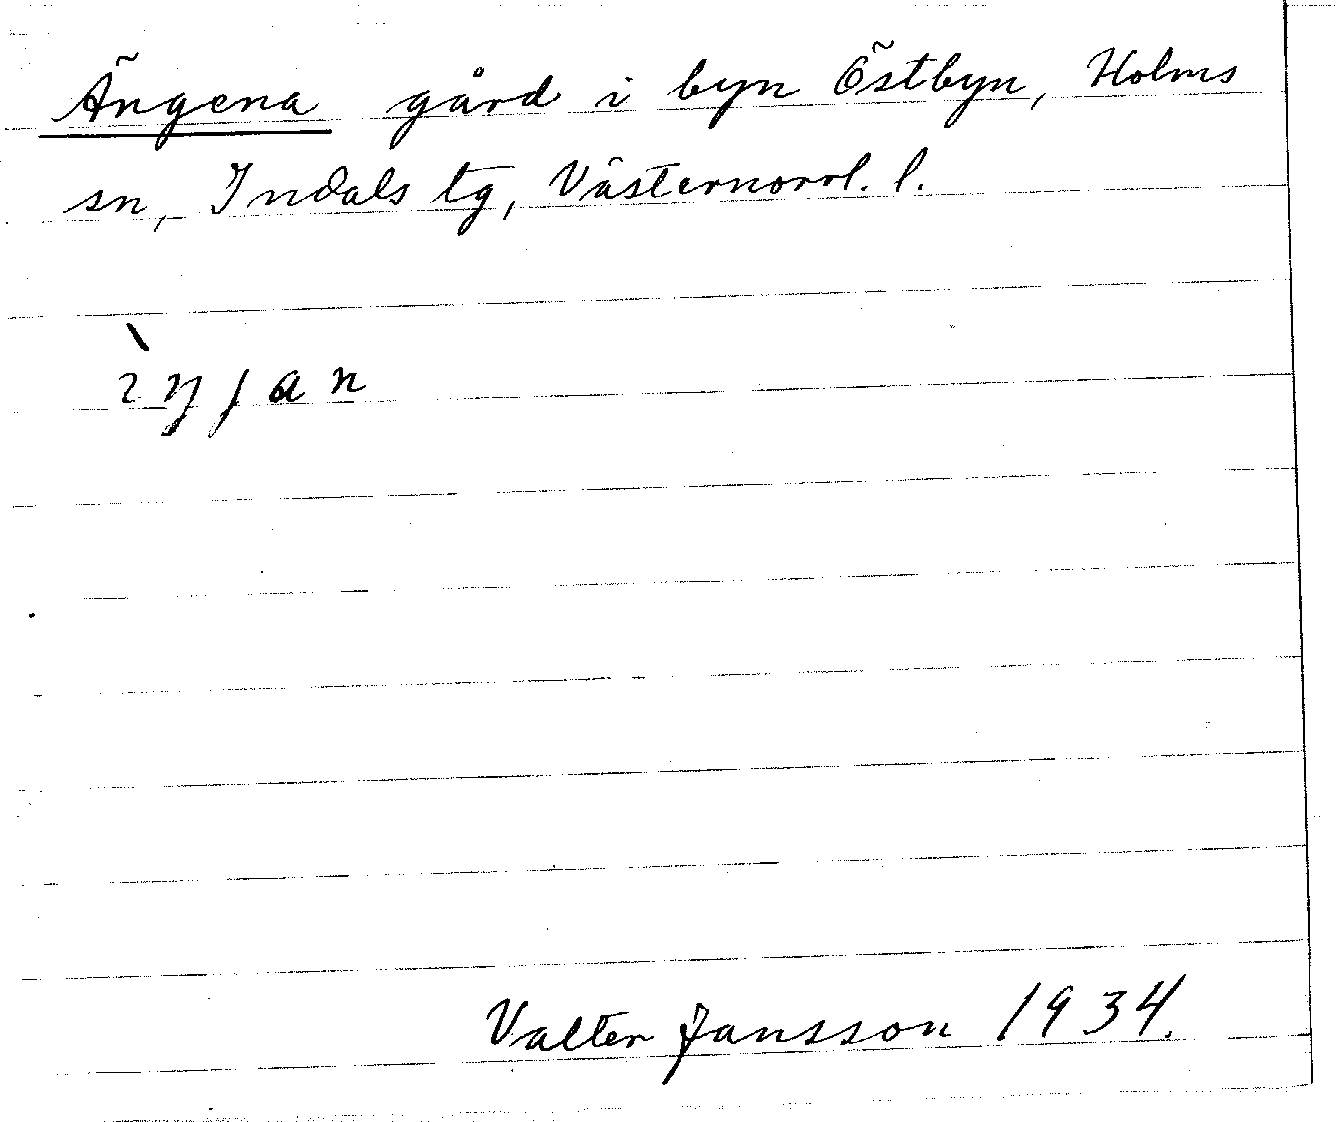 Ängena gård i byn Östbyn, Holms
sn, Indals tg, Västernorrl. l.
Valter Jansson 1934.